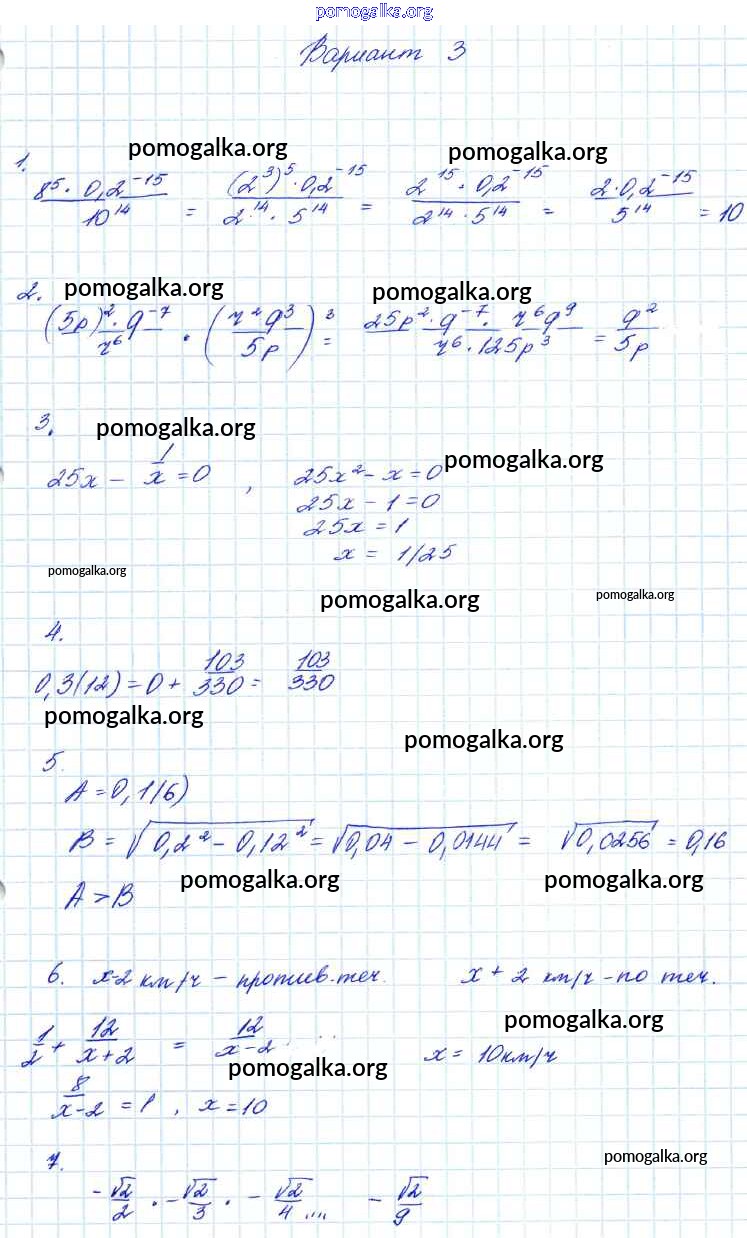 pomogalka.org
Вариант 3
pomogalka.org pomogalka.org
1.
8⁵ · 0,2⁻¹⁵ / 10¹⁴ = (2³)⁵ · 0,2⁻¹⁵ / 2¹⁴ · 5¹⁴ = 2¹⁵ · 0,2⁻¹⁵ / 2¹⁴ · 5¹⁴ = 2 · 0,2⁻¹⁵ / 5¹⁴ = 10
2. pomogalka.org pomogalka.org
(5p)² · q⁻⁷ / r⁶ · (r² q³ / 5p)³ = 25p² · q⁻⁷ · r⁶ q⁹ / r⁶ · 125p³ = q² / 5p
3. pomogalka.org
25x − 1/x = 0 , 25x² − x = 0 pomogalka.org
25x − 1 = 0
25x = 1
x = 1/25
pomogalka.org
pomogalka.org pomogalka.org
4.
0,3(12) = 0 + 103/330 = 103/330
pomogalka.org
pomogalka.org
5.
A = 0,1(6)
B = √(0,2² − 0,12²) = √(0,04 − 0,0144) = √0,0256 = 0,16
A > B pomogalka.org pomogalka.org
6. x-2 км/ч – против.теч. x + 2 км/ч – по теч.
pomogalka.org
1/2 + 12/x+2 = 12/x−2 ... x = 10км/ч
pomogalka.org
8/x−2 = 1 , x = 10
7. pomogalka.org
−√2/2 · −√2/3 · −√2/4 .... −√2/9